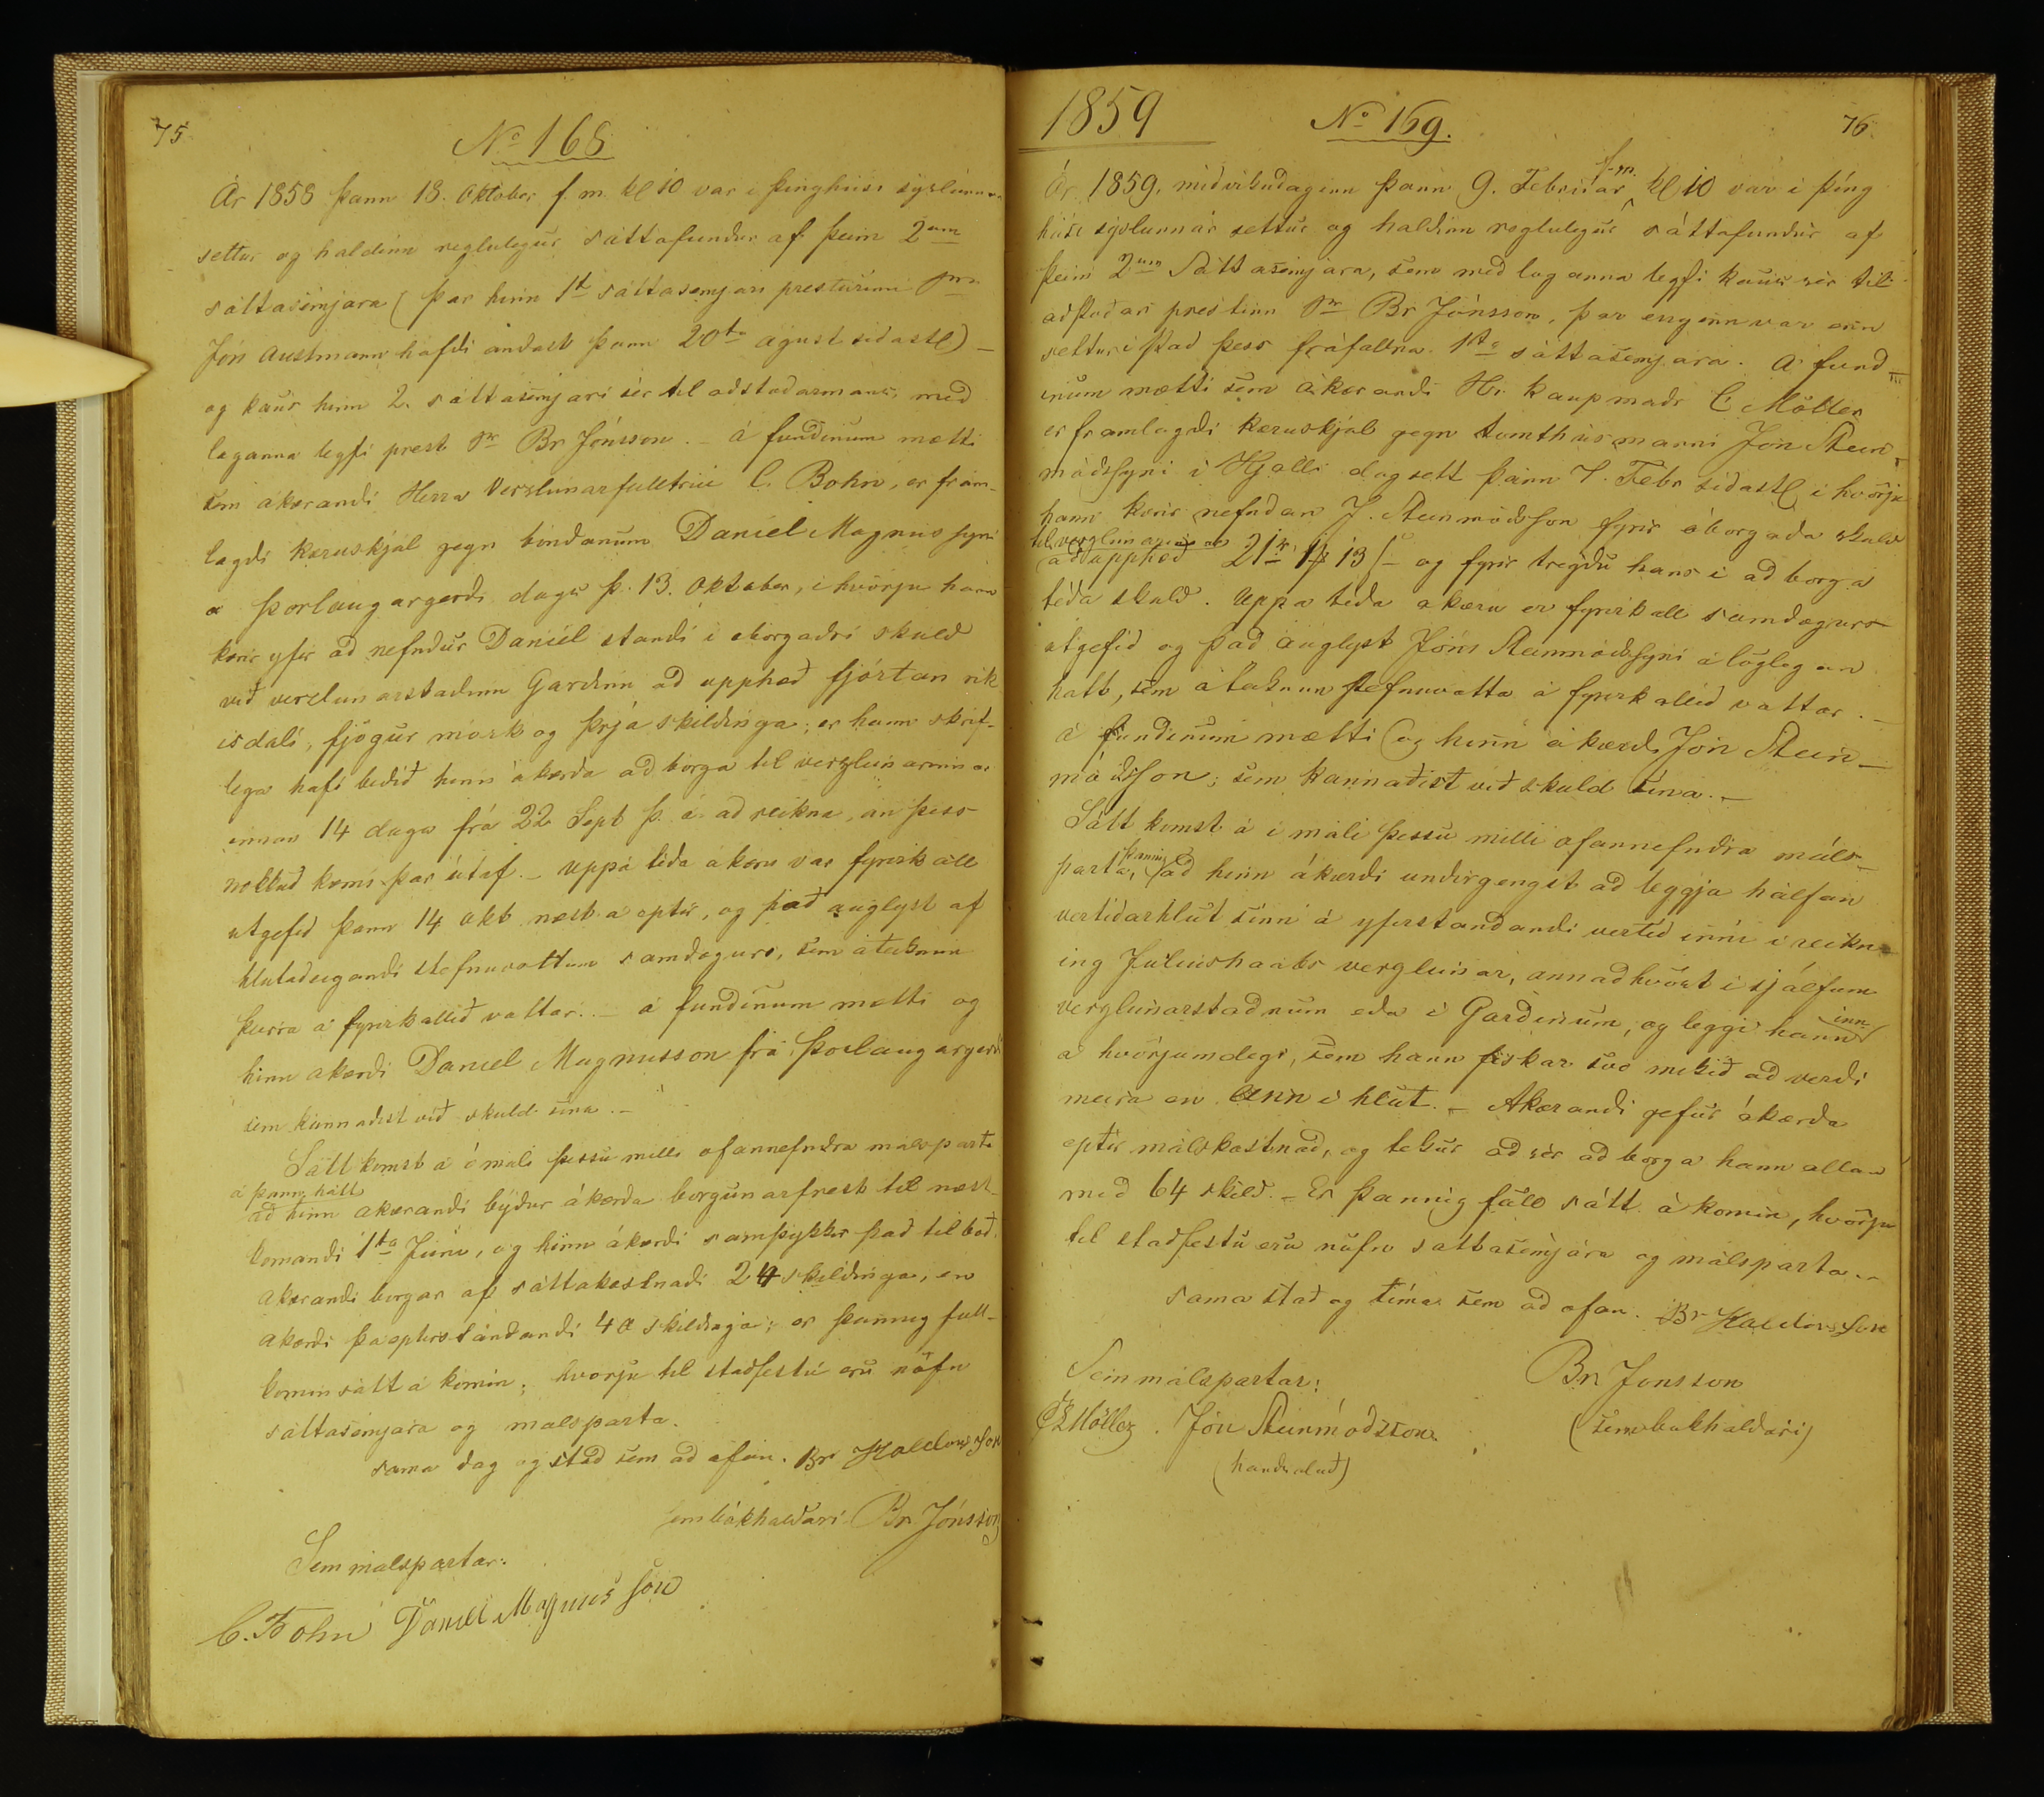 75.
No 168
Ár 1858 þann 18. Oktober f. m. kl 10 var i þinghúsi syslunnar
settur og haldinn reglulegur sáttafundur af þeim 2um
sáttasemjara (þar hinn 1ti sáttasemjari presturinn Sra
Jón Austmann hafdi andast þann 20ta ágúst sidastl) –
og kaus hinn 2. sáttasemjari sér til adstodarmans, med
laganna leyfi prest Sr Br Jónsson. – á fundinum mætti
sem ákærandi Herra Verslunarfulltrúi C. Bohn, er fram-
lagdi kæruskjal gegn bóndanum Daniel Magnussyni
a Þorlaugargerdi dags þ. 13. Oktober, i hvörju hann
kærir yfir ad nefndur Daniél standi i óborgadri skuld
vid verslunarstadinn Gardinn ad upphæd fjórtan rik
isdali, fjögur mörk og þrjá skildinga; er hann skrif-
lega hafi bedid hinn ákærda ad borga til verzlunarinnar
innan 14 daga frá 22 Sept þ. á. ad reikna, án þess
nokkud kæmi þar útaf. – Uppá téda ákæru var fyrirkall
utgefid þann 14 Okt næsta eptir, og þad auglyst af
hlutadeigandi stefnuvottum samdægurs, sem áteiknun
þeirra á fyrirkallid vottar. – á fundinum mætti og
hinn ákærdi Daniel Magnusson frá Þorlaugargerdi
sem kannadist vid skuld sina. –
Sátt komst á i máli þessu milli ofannefndra málsparta
á þann hátt
ad hinn ákærandi býdur ákærda borgunarfrest til næst-
komandi 1ta Júni, og hinn ákærdi samþykkir þad tilbod.
Akærandi borgar af sáttakostnadi 24 skildinga, en
ákærdi þá eptirstandandi 40 skildinga; er þannig full-
komin sátt á komin; hvörju til stadfestu eru nöfn
sáttasemjara og málsparta.
sama dag og stad sem ad ofan. Br Haldorsson
sem bókhaldari Br. Jónsson
Sem málspartar:
C. Bohn Daniel Magnússon
1859
No 169.
76.
f. m.
Ár 1859, midvikudaginn þann 9. Februar kl 10 var i þing
húsi syslunnar settur og haldinn reglulegur sáttafundur af
þeim 2um Sáttasemjara, sem med laganna leyfi kaus sér til
adstodar prestinn Sr Br Jónsson, þar enginn var enn
settur i stad þess fráfallna 1ta sáttasemjara. A fund-
inum mætti sem ákærandi Hr. kaupmadr C Möller
er framlagdi kæruskjal gegn tomthúsmanni Jóni Stein-
módssyni i Hjalli dagsett þann 7. Febr sidastl i hvörju
hann kærir nefndan J. Steinmódsson fyrir óborgada skuld
til verzlunarinnar
ad upphæd 21rd 1 13 s og fyrir tregdu hans i ad borga
téda skuld. Uppa téda akæru er fyrirkall samdægurs
utgefid og þad auglyst Jóni Steinmódssyni á löglegan
hátt, sem áteiknun stefnuvotta á fyrirkallid vottar. –
á fundinum mætti og hinn ákærdi Jón Stein-
módsson; sem kannadist vid skuld sina. –
Sátt komst á i máli þessu milli ofannefndra máls-
þannig
parta, ad hinn ákærdi undirgengst ad leggja hálfan
vertidarhlut sinn á yfirstandandi vertid inni i reikn-
ing Juliushaabs verzlunar, annadhvört i sjálfum
inn
verzlunarstadnum eda i Gardinum, og leggi hann
á hvörjum degi, sem hann fiskar svo mikid ad verdi
meira en Einn i hlut. – Akærandi gefur ákærda
eptir málskostnad, og tekur ad sér ad borga hann allan
med 64 skild. – Er þannig full sátt á komin, hvörju
til stadfestu eru nöfn sattasemjara og málsparta. –
sama stad og tima sem ad ofan. Br Haldorsson
Sem málspartar:
Br. Jonsson
CL Möller. Jón Steinmódsson
(sem bókhaldari)
(handsalad)